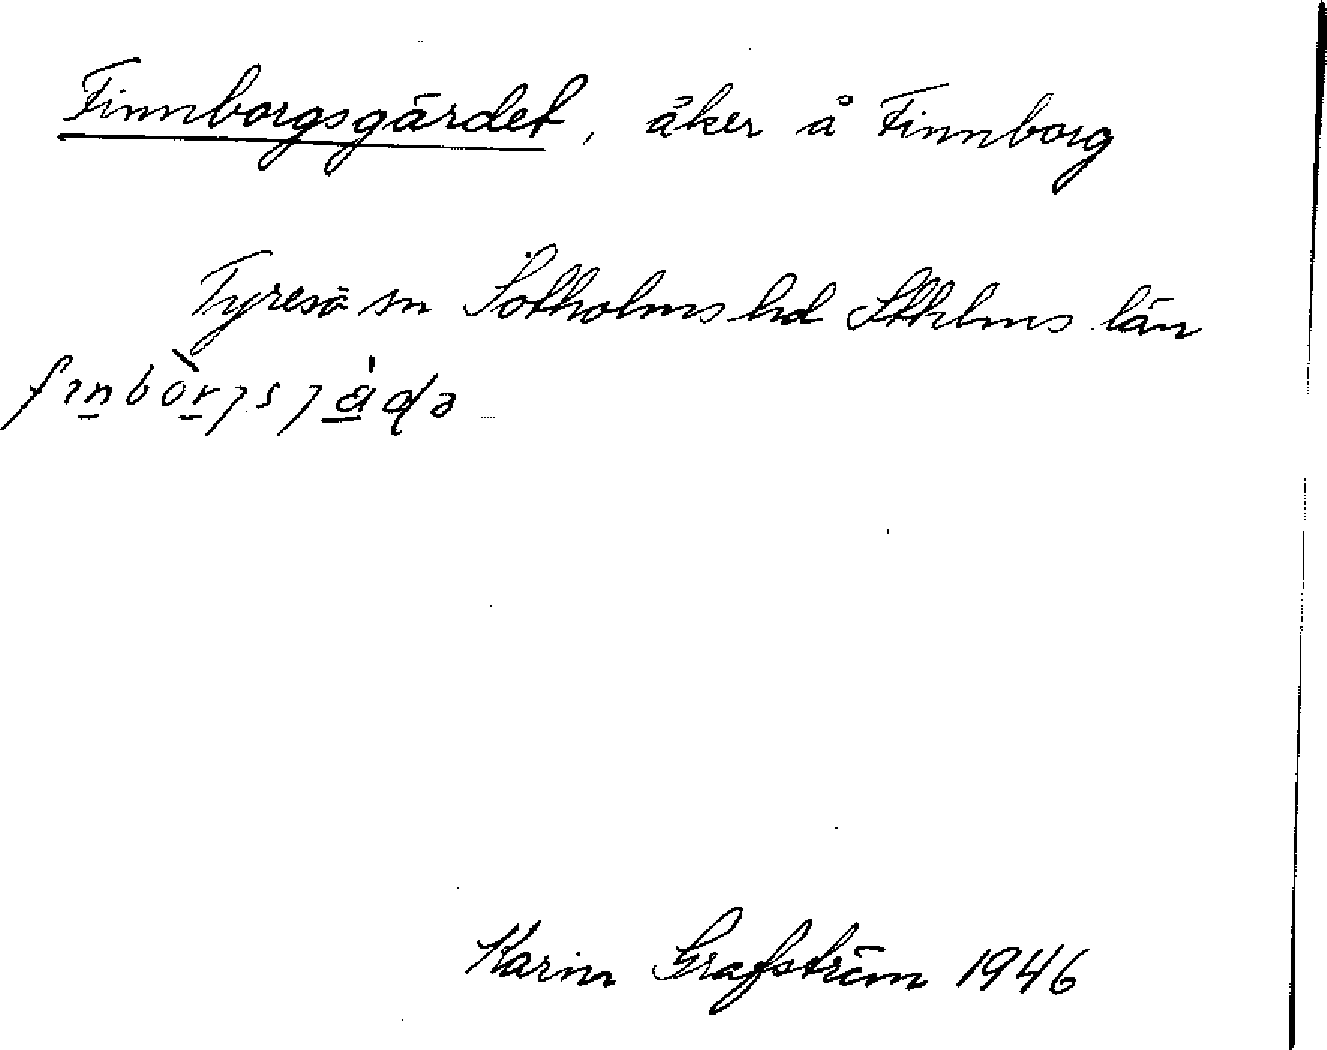 Finnborgsgärdet, åker å Finnborg
Tyresö sn Sotholms hd Sthlms län
Karin Grafström 1946